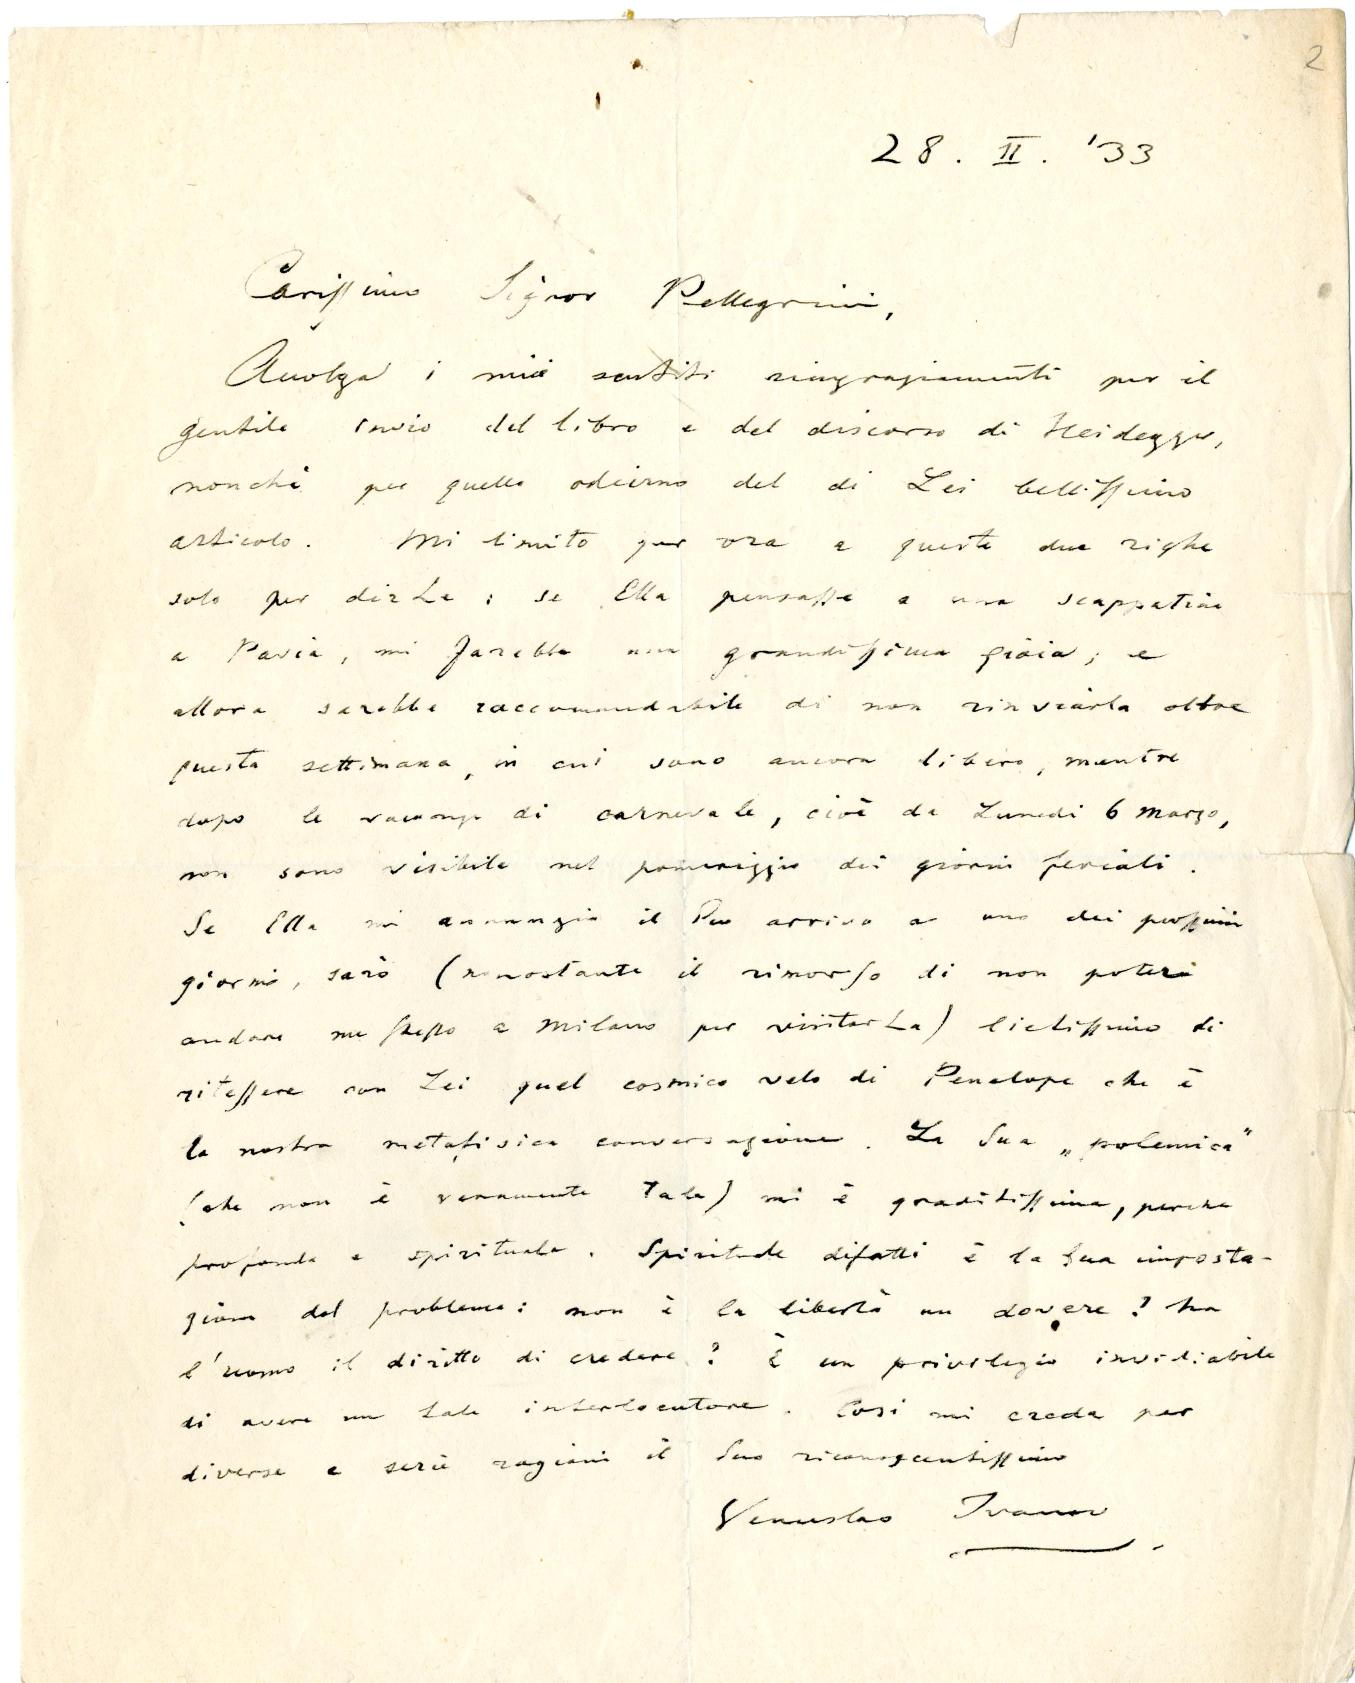 2
28. II. '33
Carissimo Signor Pellegrini,
Accolga i miei sentiti ringraziamenti per il
gentile invio del libro e del discorso di Heidegger,
nonchè per quello odierno del di Lei bellissimo
articolo. Mi limito per ora a queste due righe
solo per dirLe: se Ella pensasse a una scappatina
a Pavia, mi farebbe una grandissima gioia; e
allora sarebbe raccomandabile di non rinviarla oltre
questa settimana, in cui sono ancora libero, mentre
dopo le vacanze di carnevale, cioè da Lunedi 6 marzo,
non sono visibile nel pomeriggio dei giorni feriali.
Se Ella mi annunzia il Suo arrivo a uno dei prossimi
giorni, sarò (nonostante il rimorso di non potere
andare me stesso a Milano per visitarLa) lietissimo di
ritessere con Lei quel cosmico velo di Penelope che è
la nostra metafisica conversazione. La Sua „polemica"
(che non è veramente tale) mi è graditissima, perche
profonda e spirituale. Spirituale difatti è la Sua imposta-
zione del problema: non è la libertà un dovere? ha
l'uomo il diritto di credere? È un privilegio invidiabile
di avere un tale interlocutore. Cosi mi creda per
diverse e serie ragioni il Suo riconoscentissimo
Venceslao Ivanov